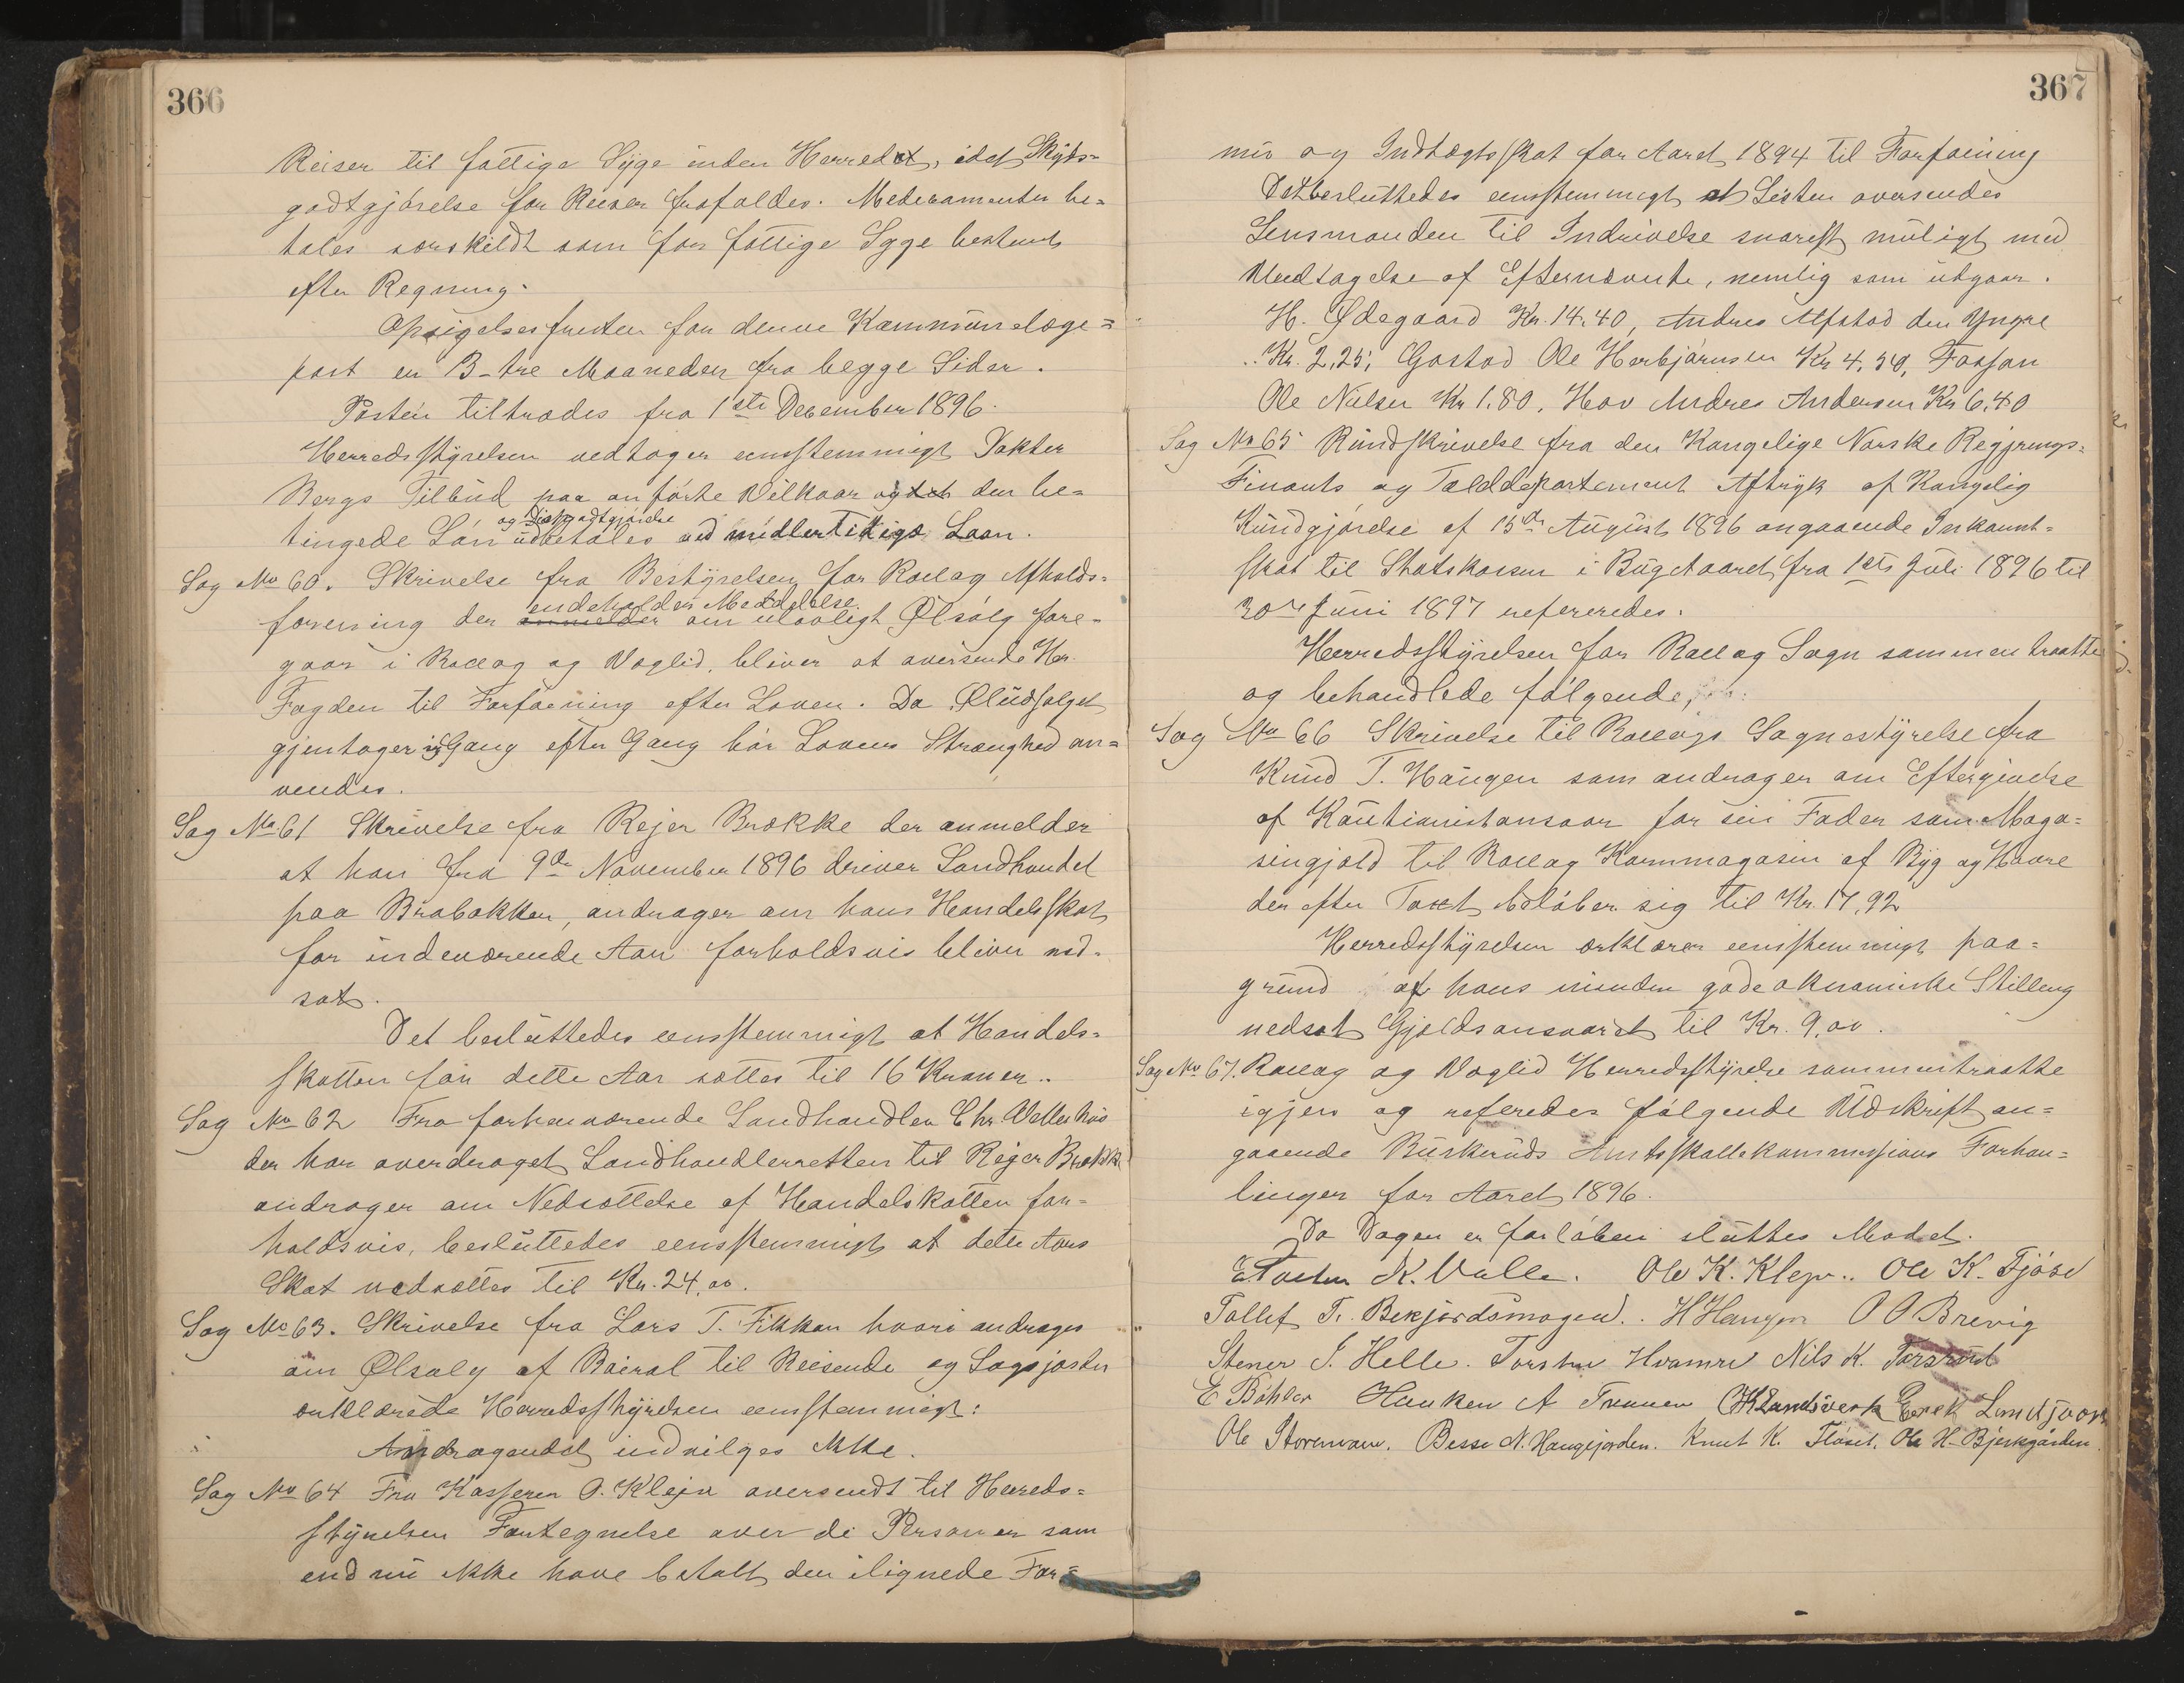 366
Reiser til fattige Syge inden Herredet, idet Skyds-
godtgjørelse for Reiser frafaldes. Medicamenter be-
tales særskildt som for fattige Syge bestemt
efter Regning.
Opsigelsesfristen for denne Kommunelæge-
post er 3-tre Maaneder fra begge Sider.
Posten tiltrædes fra 1ste December 1896.
Herredsstyrelsen vedtager eensstemmigt Dokter
Bergs Tilbud paa anførte Vilkaar og den be-
og Diætgodtgjørelse
tingede Løn udbetales ved midlertidige Laan.
Sag No 60. Skrivelse fra Bestyrelsen for Rollag Afholds-
endeholder Meddelelse
forening der anmelder om ulovligt Ølsalg fore-
gaar i Rollag og Væglid, bliver at oversende Hr.
Fogden til Forføining efter Loven. Da Øludsalget
gjentager sig Gang efter Gang bør Lovens Strænghed an-
vendes.
Sag No 61 Skrivelse fra Rejer Brække der anmelder
at han fra 9de November 1896 driver Landhandel
paa Brabakken, andrager om hans Handelsskat
for indeværende Aar forholdsvis bliver ned-
sat.
Det besluttedes eensstemmigt at Handels-
skatten for dette Aar sættes til 16 Kroner.
Sag No 62 Fra forhenværende Landhandler Chr. Velleshus
der har overdraget Landhandlerretten til Rejer Brække
andrager om Nedsættelse af Handelskatten for-
holdsvis, besluttedes eensstemmigt at dette Aars
Skat nedsættes til Kr. 24,00.
Sag No 63. Skrivelse fra Lars T. Fikkan hvori andrages
om Ølsalg af Baierøl til Reisende og Lagsjoster
erklærede Herredsstyrelsen eensstemmigt:
Andragendet indvilges ikke.
Sag No 64 Fra Kasserer O. Klejv oversendt til Herreds-
styrelsen Fortegnelse over de Personer som
endnu ikke have betalt den ilignede For-
367
mue og Indtægtsskat for Aaret 1894 til Forføining
Det besluttedes eensstemmigt at Listen oversendes
Lensmanden til Indrivelse snarest muligt med
Undtagelse af Efternævnte, nemlig som udgaar.
H. Ødegaard Kr. 14.40, Andres Alfstad den Yngre
Kr. 2,25; Gostad Ole Herbjørnsen Kr 4,50, Fosjan
Ole Nielsen Kr 1.80, Hov Andres Andersen Kr 6.40
Sag No 65 Rundskrivelse fra den Kongelige Norske Regjerings-
Finants og Tolddepartement Aftryk af Kongelig
Kundgjørelse af 15de August 1896 angaaende Inkomst-
skat til Statskassen i Bugetaaret fra 1ste Juli 1896 til
30te Juni 1897 refereredes.
Herredsstyrelsen for Rollag Sogn sammentraatte
og behandlede følgende,
Sag No 66 Skrivelse til Rollags Sognestyrelse fra
Knud T. Haugen som andrager om Eftergivelse
af Kautionistansvar for sin Fader som Maga-
singjæld til Rollag Kornmagasin af Byg og Havre
der efter Taxt beløber sig til Kr. 17,92
Herredsstyrelsen erklærer eensstemmigt paa-
grund af hans mindre gode økonomiske Stilling
nedsat Gjeldsansvaret til Kr. 9,00.
Sag No 67. Rollag og Væglid Herredsstyrelse sammentraatte
igjen og referedes følgende Udskrift an-
gaaende Buskeruds Amtsskattekommissions Forhan-
linger for Aaret 1896.
Da Dagen er forløben sluttes Mødet.
K. Valle. Ole K. Klejv.. Ole K. Fjøse
Tollef T. Bekjordsmogen. H Haugen O O Brevig
Stener J. Helle. Torsten Hvamre Nils K. Tarsrud
E Bøhler Haaken A Traaen O K Landsverk Eerek Landsjoor
Ole Storemoen. Besse N. Haugejorden. Knut K. Fløset. Ole H. Bjerkgården.